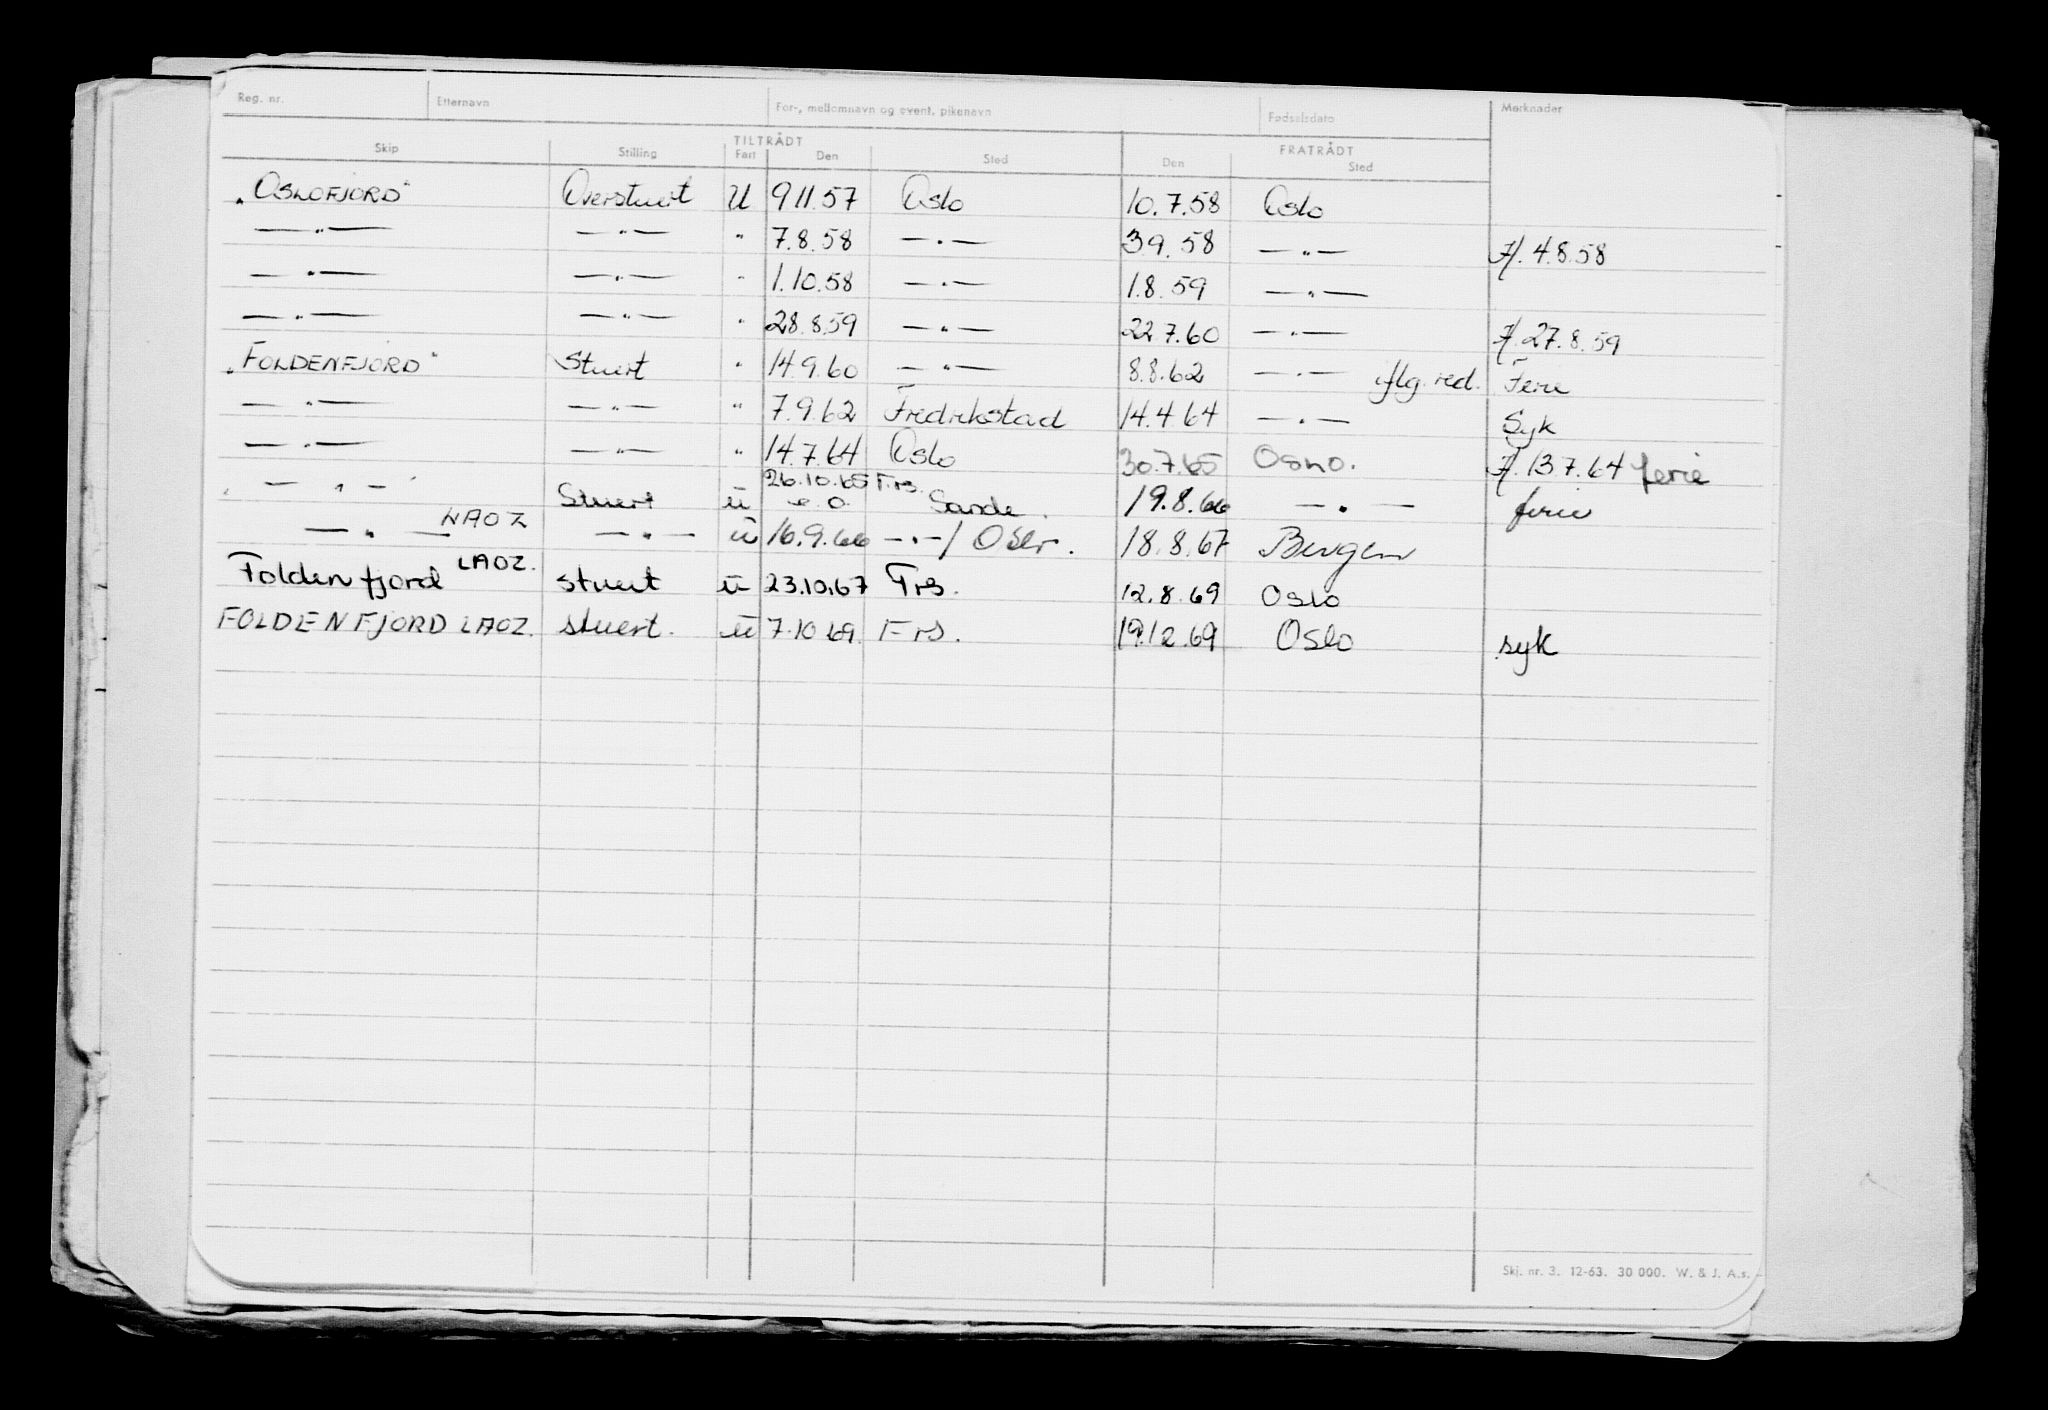 Reg. nr. Etternavn For-, mellomnavn og event. pikenavn Fødselsdato Merknader
TILTRÅDT FRATRÅDT
Skip Stilling Fart Den Sted Den Sted
"OSLOFJORD" Overstuert U 9 11.57 Oslo 10.7.58 Oslo
— " — — " — " 7.8.58 — " — 3 9.58 — " — 4.8.58
— " — — " — " 1.10.58 — " — 1.8.59 — " —
— " — — " — " 28.8.59 — " — 22.7.60 — " — 27.8.59
"FOLDENFJORD" Stuert " 14.9.60 — " — 8.8.62 — " — iflg. red. Ferie
— " — — " — " 7.9.62 Fredrikstad 14.4.64 — " — Syk
— " — — " — " 14.7.64 Oslo 30.7.65 OSLO. 13.7.64 ferie
— " — Stuert u 26.10.65 Frs. e.o. Sande. 19.8.66 — " — ferie
— " — LAOZ — " — u 16.9.66 — " — / Oslo. 18.8.67 Bergen
Foldenfjord LAOZ. stuert u 23.10.67 Frs. 12.8.69 Oslo
FOLDENFJORD LAOZ. stuert. u 7.10 69. Frs. 19.12.69 Oslo syk
Skj. nr. 3. 12-63. 30 000. W. & J. A.s.